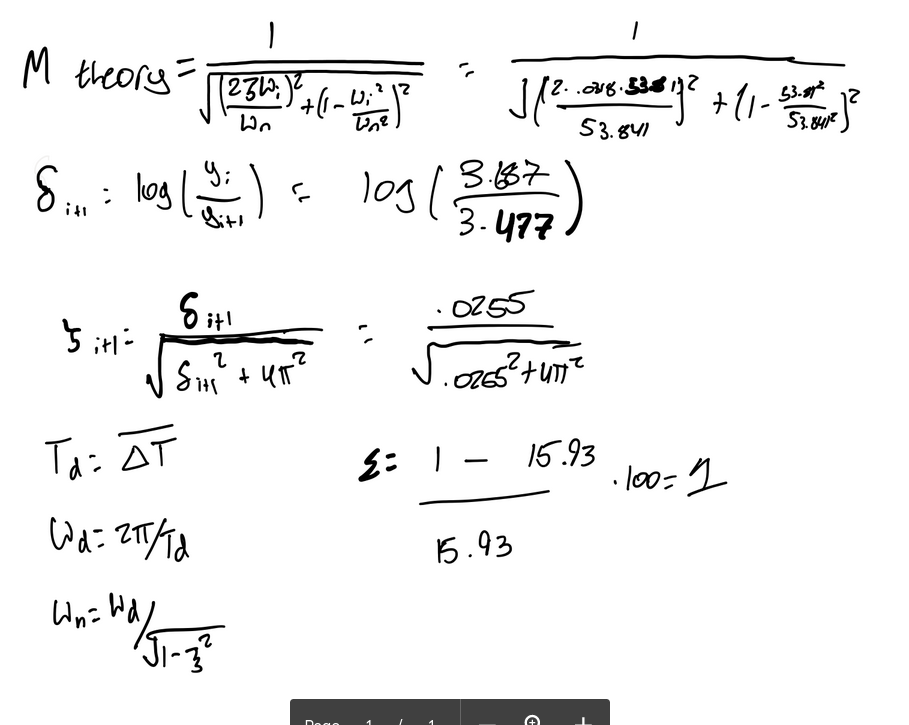 M theory = 1 / √((2ζωi/ωn)² + (1 - ωi²/ωn²)²) = 1 / √((2 · .0418 · 53.81)/53.841)² + (1 - 53.81²/53.841²)²
δ i+1 = log(yi/yi+1) = log(3.687/3.477)
ζ i+1 = δ i+1 / √(δ i+1² + 4π²) = .0255 / √(.0265² + 4π²)
Td = ΔT
ε = 1 - 15.93 / 15.93 · 100 = 1
ωd = 2π/Td
ωn = ωd/√(1-ζ²)
Page 1 / 1